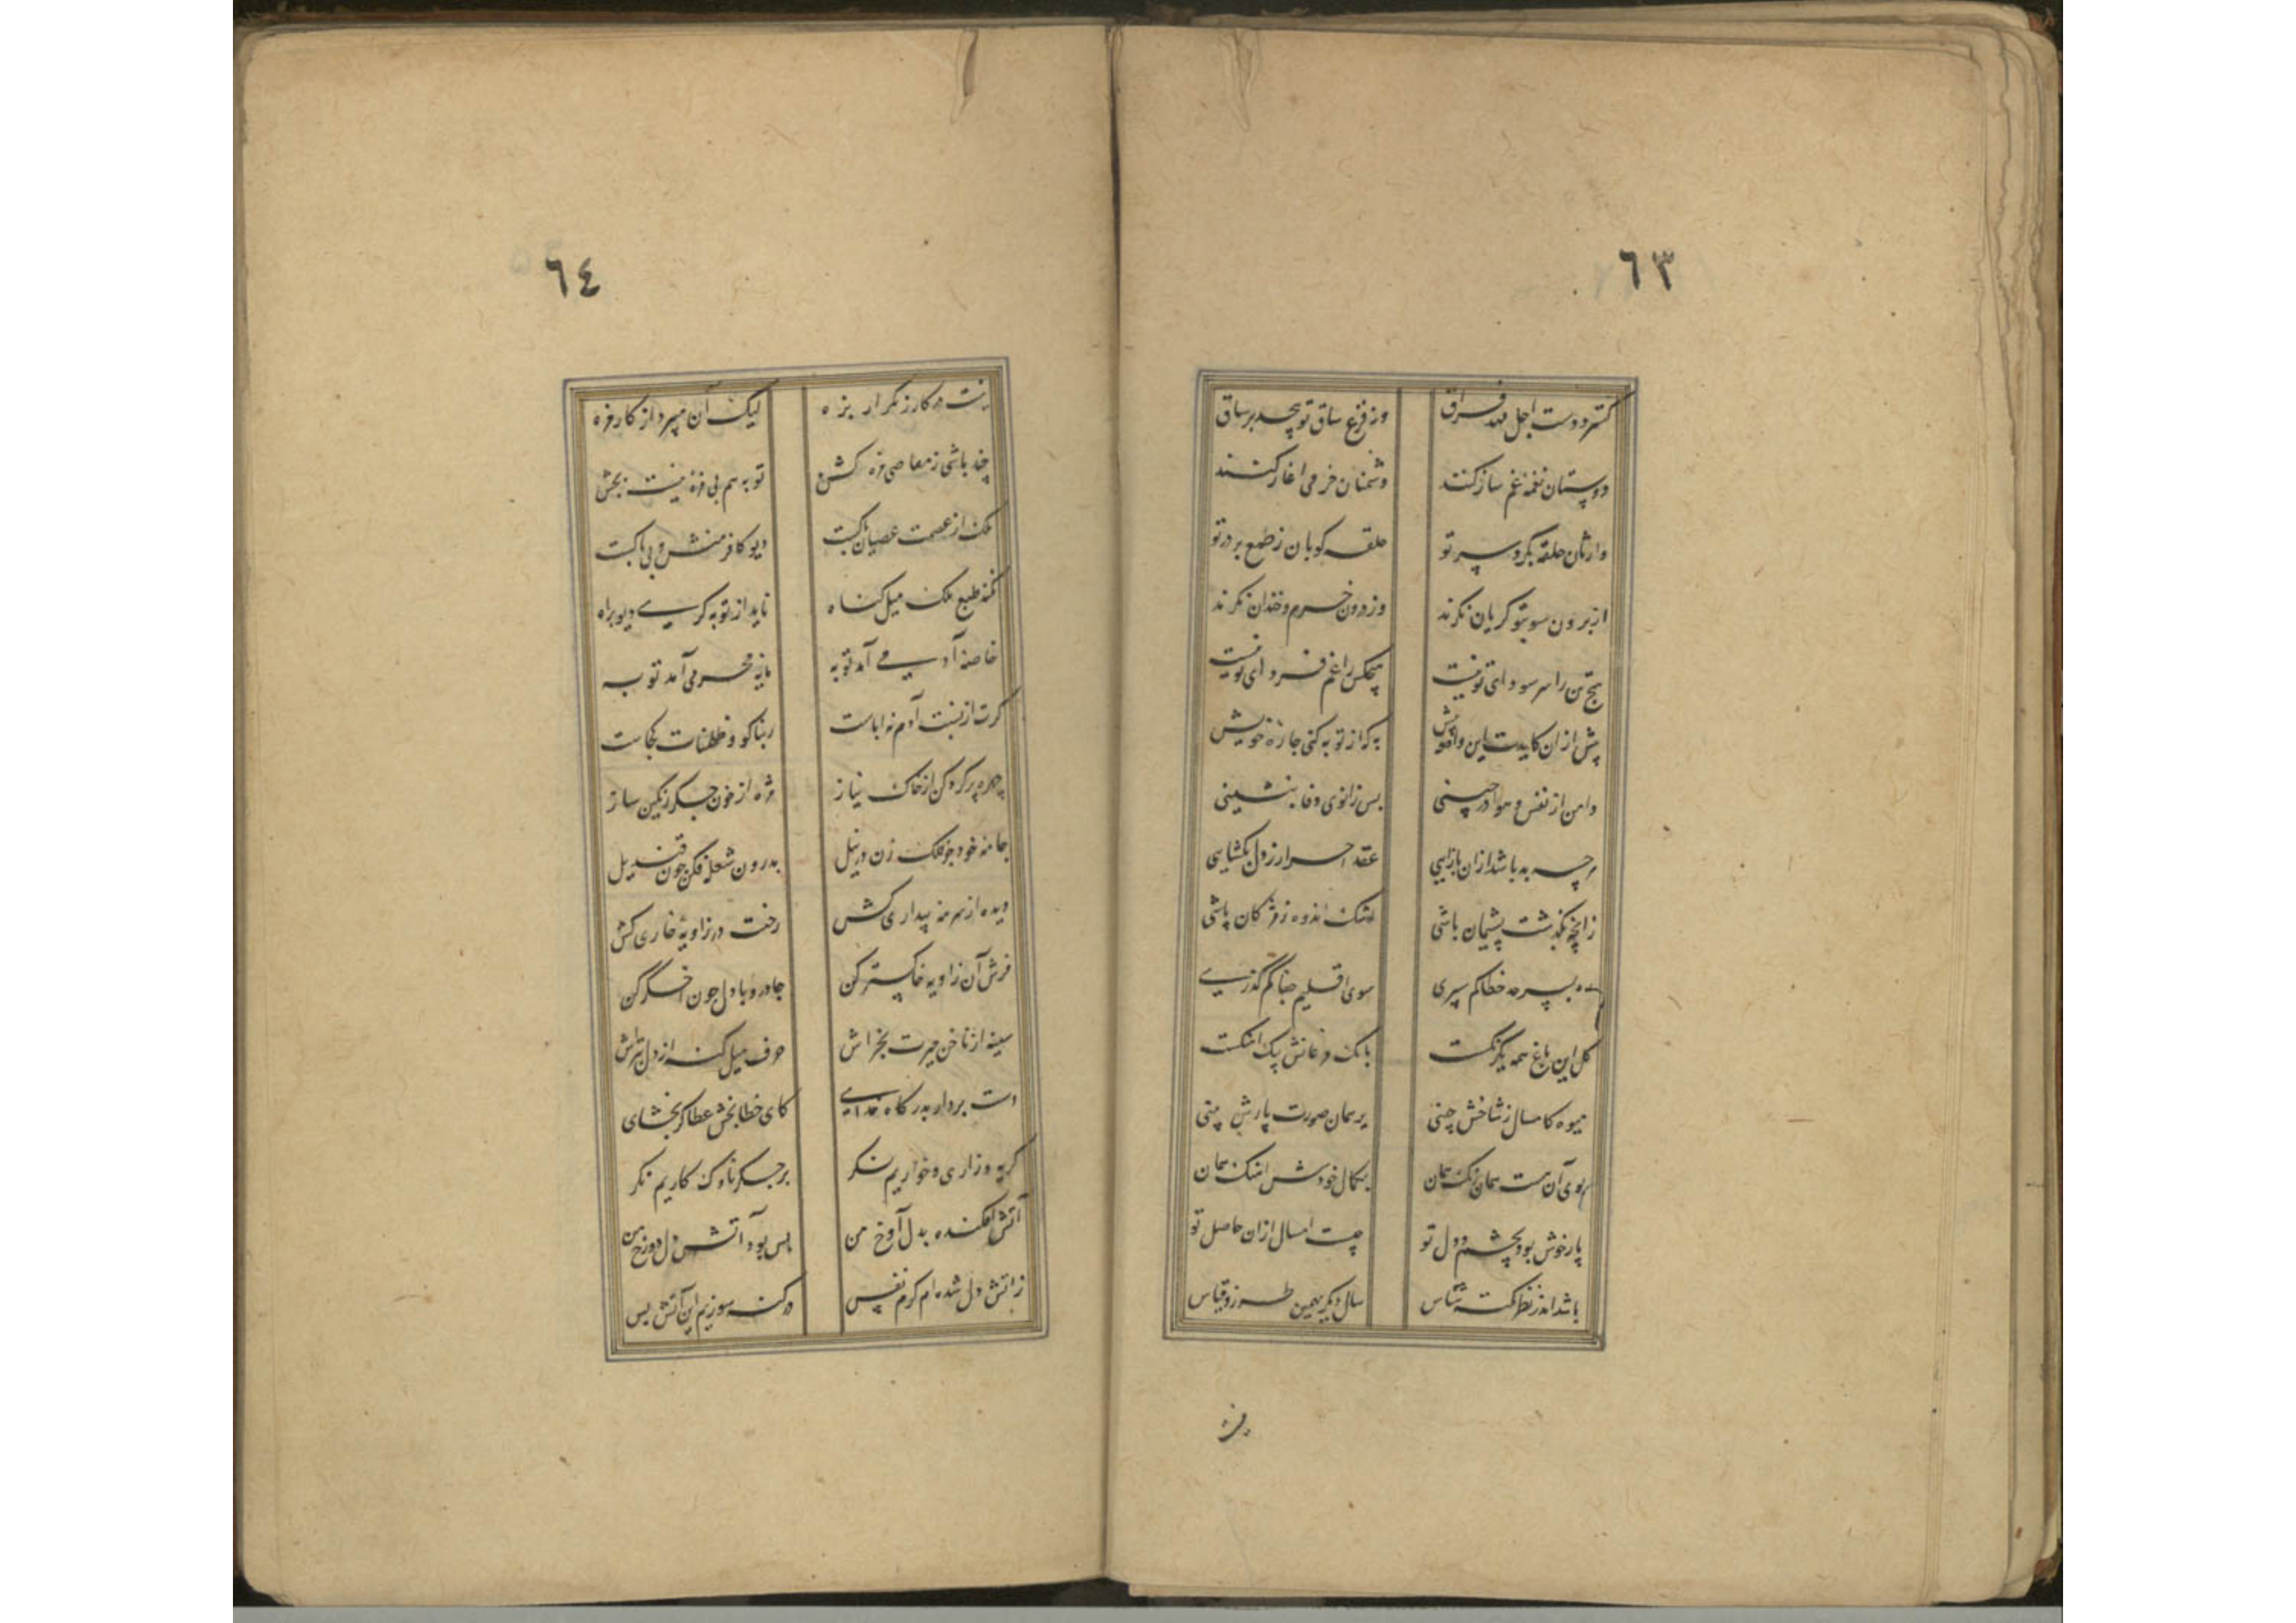 ٦٣
گسترد دست اجل مهد فراق
وز فزع ساق تو پیچد بر ساق
دوستان نغمه غم ساز کنند
دشمنان خرمی اغاز کنند
وارثان حلقه بگرد سر تو
حلقه کوبان ز طمع بر در تو
از برون سوبتو کریان نکرند
وز درون خرم و خندان نکرند
هیچ تن را سر سودای تو نیست
هیچکس را غم فردای تو نیست
پیش از ان کایدت این واقعه پیش
به که از توبه کنی چاره خویش
دامن از نفس و هوا در چینی
پس زانوی وفا بنشینی
هر چه به باشد ازان بازآیی
عقد اصرار ز دل بکشایی
زانچه بگذشت پشیمان باشی
اشک اندوه ز مژکان پاشی
ره بسر حد خطا کم سپری
سوی اقلیم جفا کم گذری
کل این باغ همه یکرنکست
بانک مرغانش یک اهنکست
میوه کامسال ز شاخش چینی
بر همان صورت پارش بینی
بوی آن هست همان رنک همان
بکمال خودش اهنک همان
پار خوش بود بچشم و دل تو
چیست امسال ازان حاصل تو
باشد اندر نظر نکته شناس
سال دیکر بهمین طرز و قیاس
٦٤
نیست در کار ز تکرار بزه
لیک آن میبرد از کار مزه
چند باشی ز معاصی مزه کش
توبه هم بی مزه نیست بچش
ملک از عصمت عصیان پاکست
دیو کافر منش و بی باکست
نکند طبع ملک میل کناه
ناید از توبه کری دیو براه
خاصه آدمی آمد توبه
مایه محرمی آمد توبه
کرت از نسبت آدم نه اباست
ربنا کو و ظلمنات کجاست
چهره پر کرد کن از خاک نیاز
مژه از خون جکر رنکین ساز
جامه خود چو فلک زن در نیل
بدرون شعله فکن چون قندیل
دیده از سرمه بیداری کش
رخت در زاویه خاری کش
فرش آن زاویه خاکستر کن
جا درو با دل چون اخگر کن
سینه از ناخن حیرت بخراش
حرف میل کنه از دل بتراش
دست بردار بدرکاه خدای
کای خطابخش عطاکر بخشای
کریه و زاری و خواریم نکر
بر جکر ناوک کاریم نکر
آتش افکنده بدل آوخ من
بس بود آتش دل دوزخ من
ز آتش دل شده ام کرم نفس
در کنه سوزیم این آتش بس